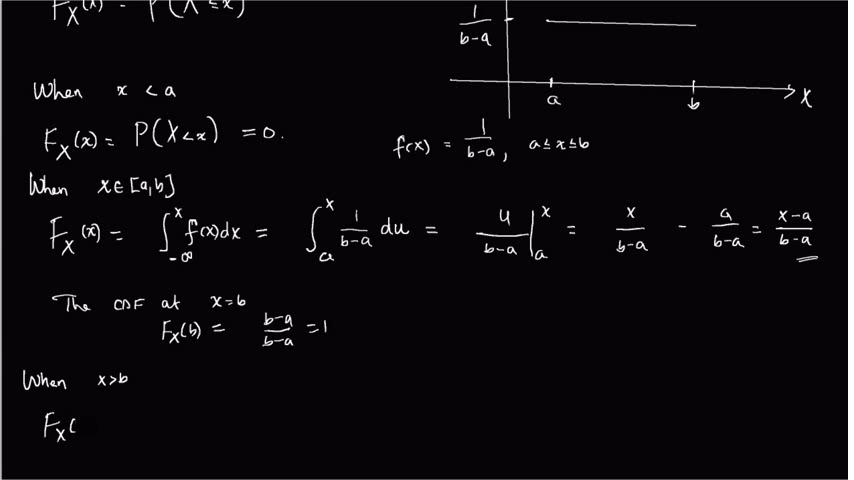 F_X(x) = P(X ≤ x)
1/(b-a)
a b X
When x < a
F_X(x) = P(X<x) = 0.
f(x) = 1/(b-a), a ≤ x ≤ b
When x ∈ [a,b]
F_X(x) = ∫_{-∞}^{x} f(x)dx = ∫_a^x 1/(b-a) du = u/(b-a) |_a^x = x/(b-a) - a/(b-a) = (x-a)/(b-a)
The CDF at x=b
F_X(b) = (b-a)/(b-a) = 1
When x>b
F_X(